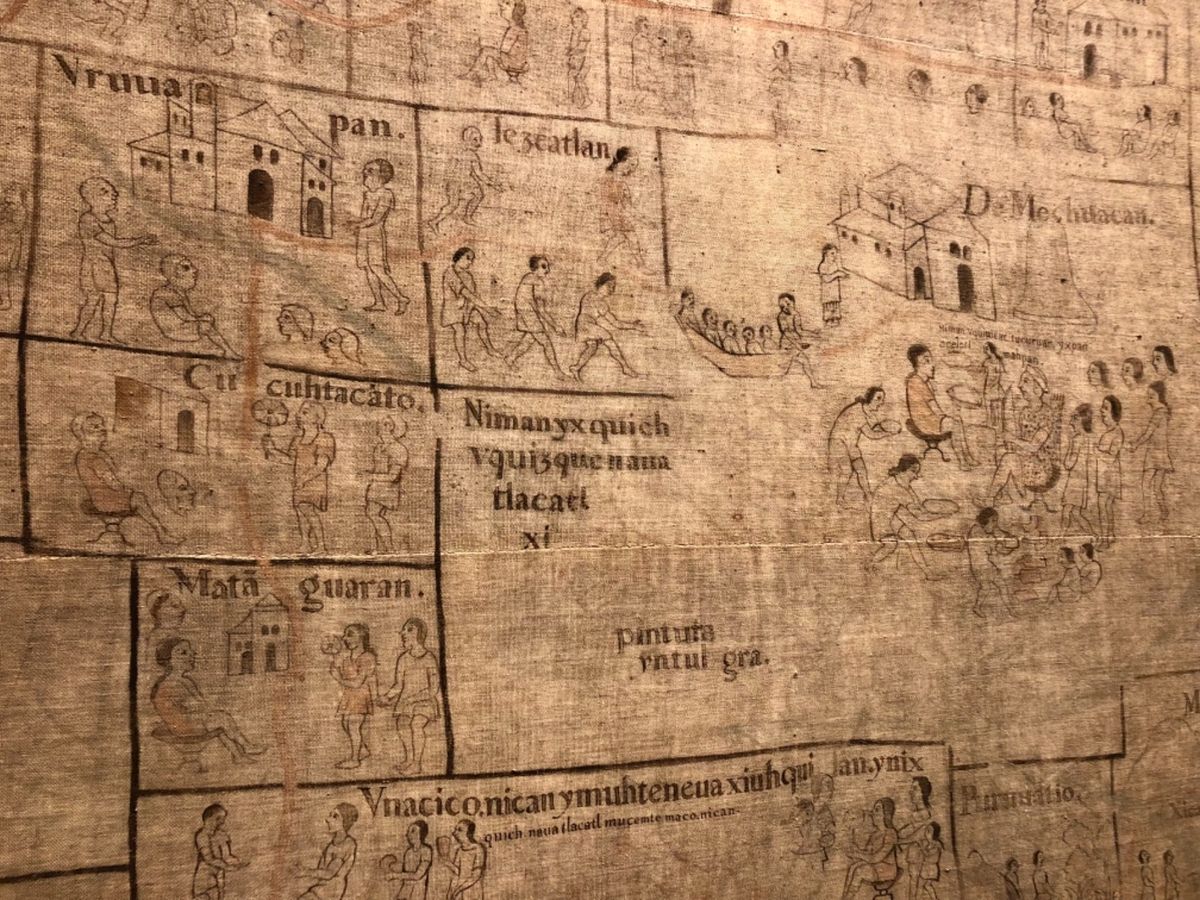 Vruua pan.
lezcatlan
De Mechuacan.
Cu cuhtacato.
Nimanyxquich
vquizque naua
tlacatl
xi
Mata guaran.
pintura
yntul gra.
Vnacico.nican ymuhteneua xiuhqui lan.ynix
quich naua tlacatl mucemte maco.nican